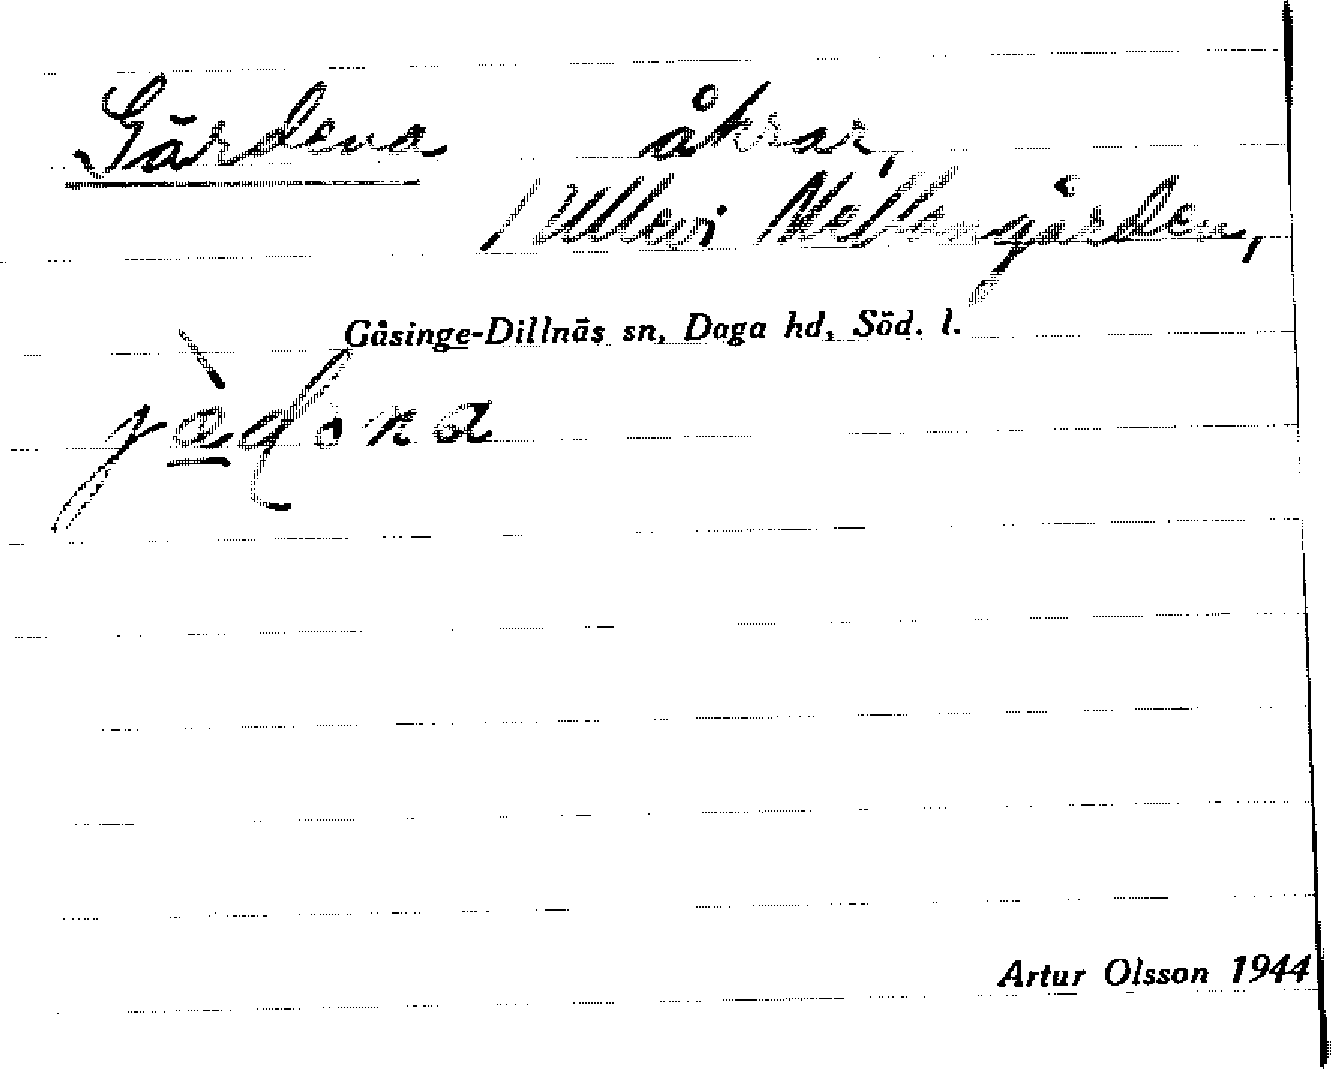 Gärdena åkrar,
Ullevi Mellangården,
Gåsinge-Dillnäs sn, Daga hd, Söd. l.
Artur Olsson 1944